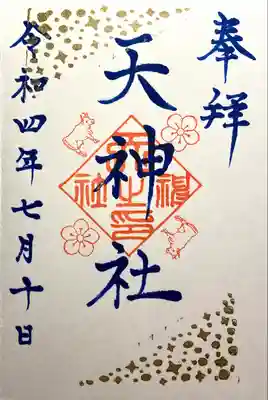 奉拝
天神社
令和四年七月十日